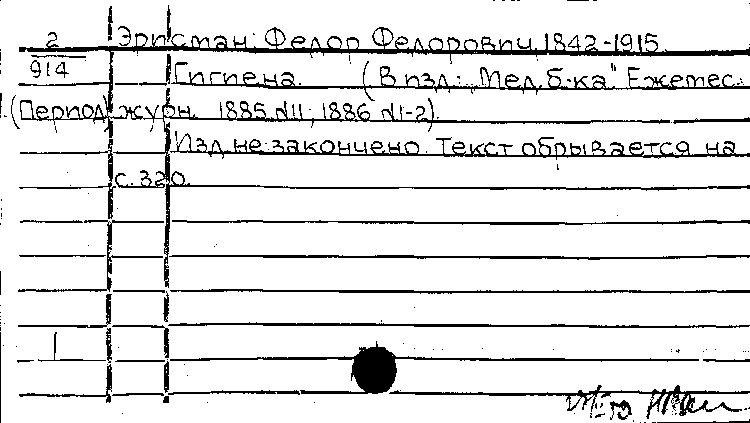 2 Эрисман Федор Федорович, 1842-1915.
914 Гигиена. (В изд.: „Мед. б-ка" Ежемес.
(Период) журн. 1885 №11; 1886 №1-2).
Изд. не закончено. Текст обрывается на
с. 320.